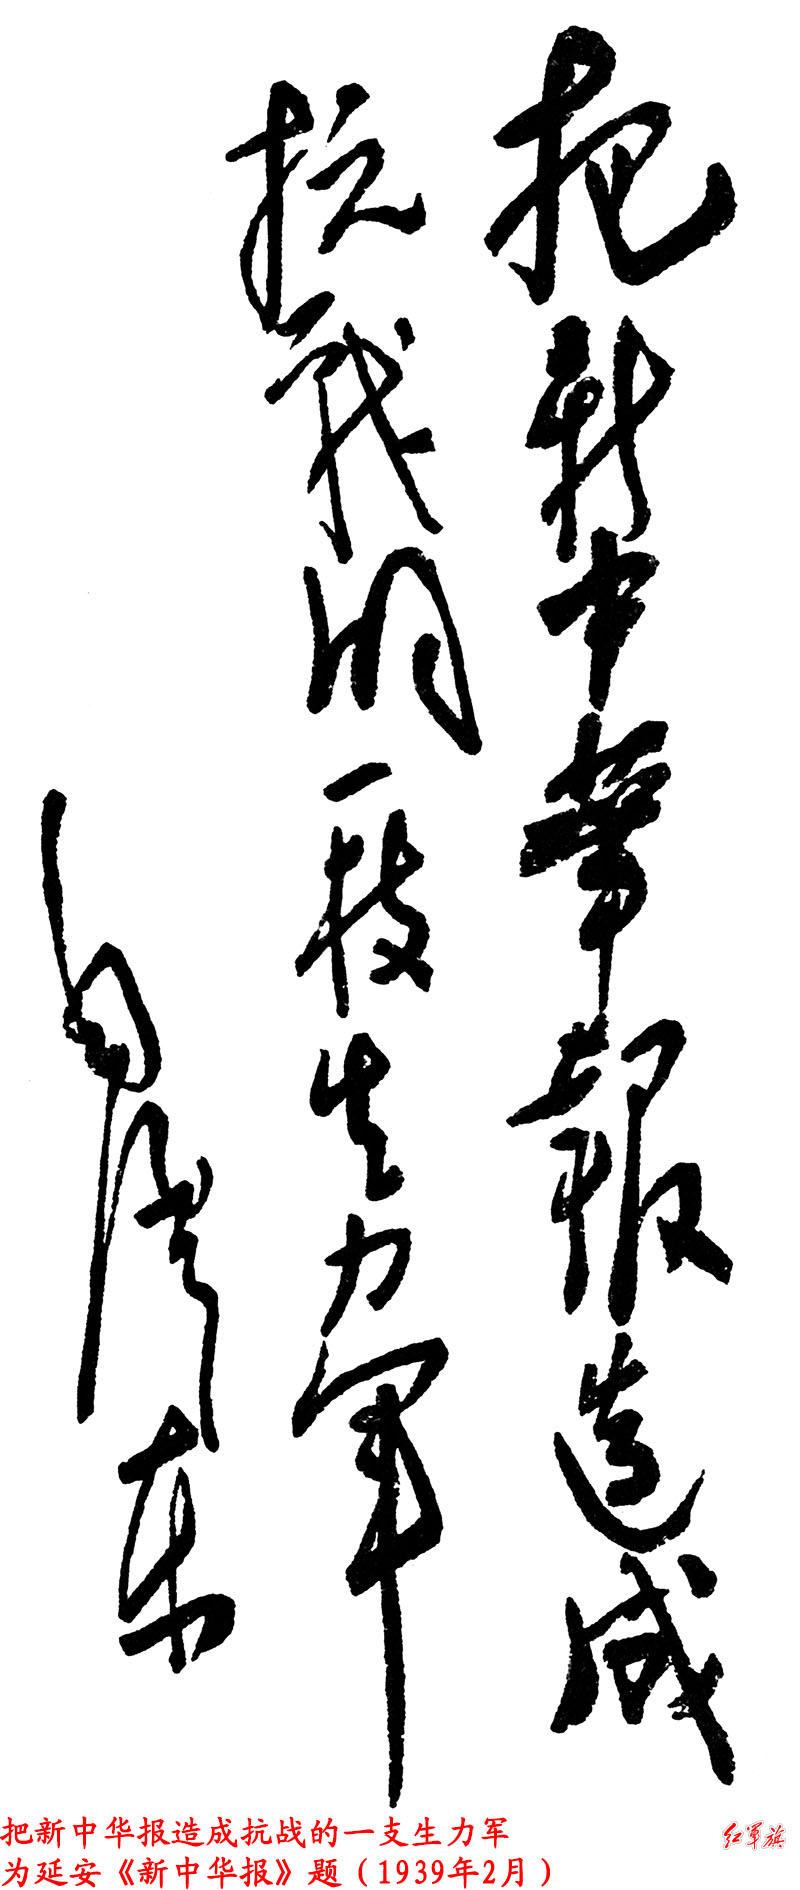 把新中華報造成
抗战的一枝生力軍
毛澤东
把新中华报造成抗战的一支生力军
为延安《新中华报》题（1939年2月）
红军旗